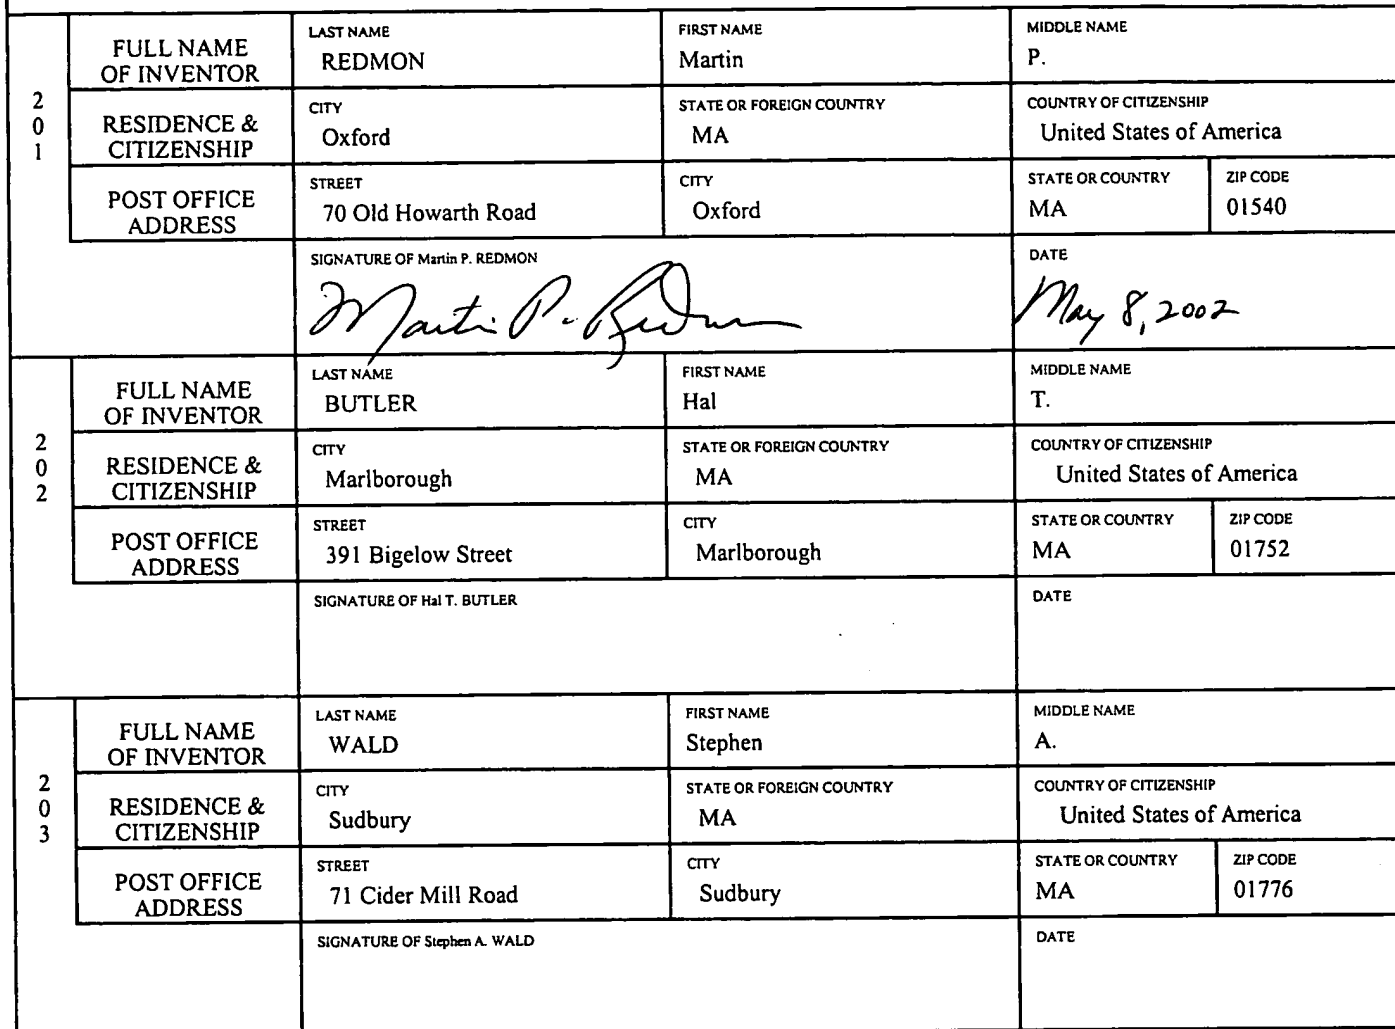 2
0
1
FULL NAME
OF INVENTOR
LAST NAME
REDMON
FIRST NAME
Martin
MIDDLE NAME
P.
RESIDENCE &
CITIZENSHIP
CITY
Oxford
STATE OR FOREIGN COUNTRY
MA
COUNTRY OF CITIZENSHIP
United States of America
POST OFFICE
ADDRESS
STREET
70 Old Howarth Road
CITY
Oxford
STATE OR COUNTRY
MA
ZIP CODE
01540
SIGNATURE OF Martin P. REDMON
Martin P. Redmon
DATE
May 8, 2002
2
0
2
FULL NAME
OF INVENTOR
LAST NAME
BUTLER
FIRST NAME
Hal
MIDDLE NAME
T.
RESIDENCE &
CITIZENSHIP
CITY
Marlborough
STATE OR FOREIGN COUNTRY
MA
COUNTRY OF CITIZENSHIP
United States of America
POST OFFICE
ADDRESS
STREET
391 Bigelow Street
CITY
Marlborough
STATE OR COUNTRY
MA
ZIP CODE
01752
SIGNATURE OF Hal T. BUTLER
DATE
2
0
3
FULL NAME
OF INVENTOR
LAST NAME
WALD
FIRST NAME
Stephen
MIDDLE NAME
A.
RESIDENCE &
CITIZENSHIP
CITY
Sudbury
STATE OR FOREIGN COUNTRY
MA
COUNTRY OF CITIZENSHIP
United States of America
POST OFFICE
ADDRESS
STREET
71 Cider Mill Road
CITY
Sudbury
STATE OR COUNTRY
MA
ZIP CODE
01776
SIGNATURE OF Stephen A. WALD
DATE